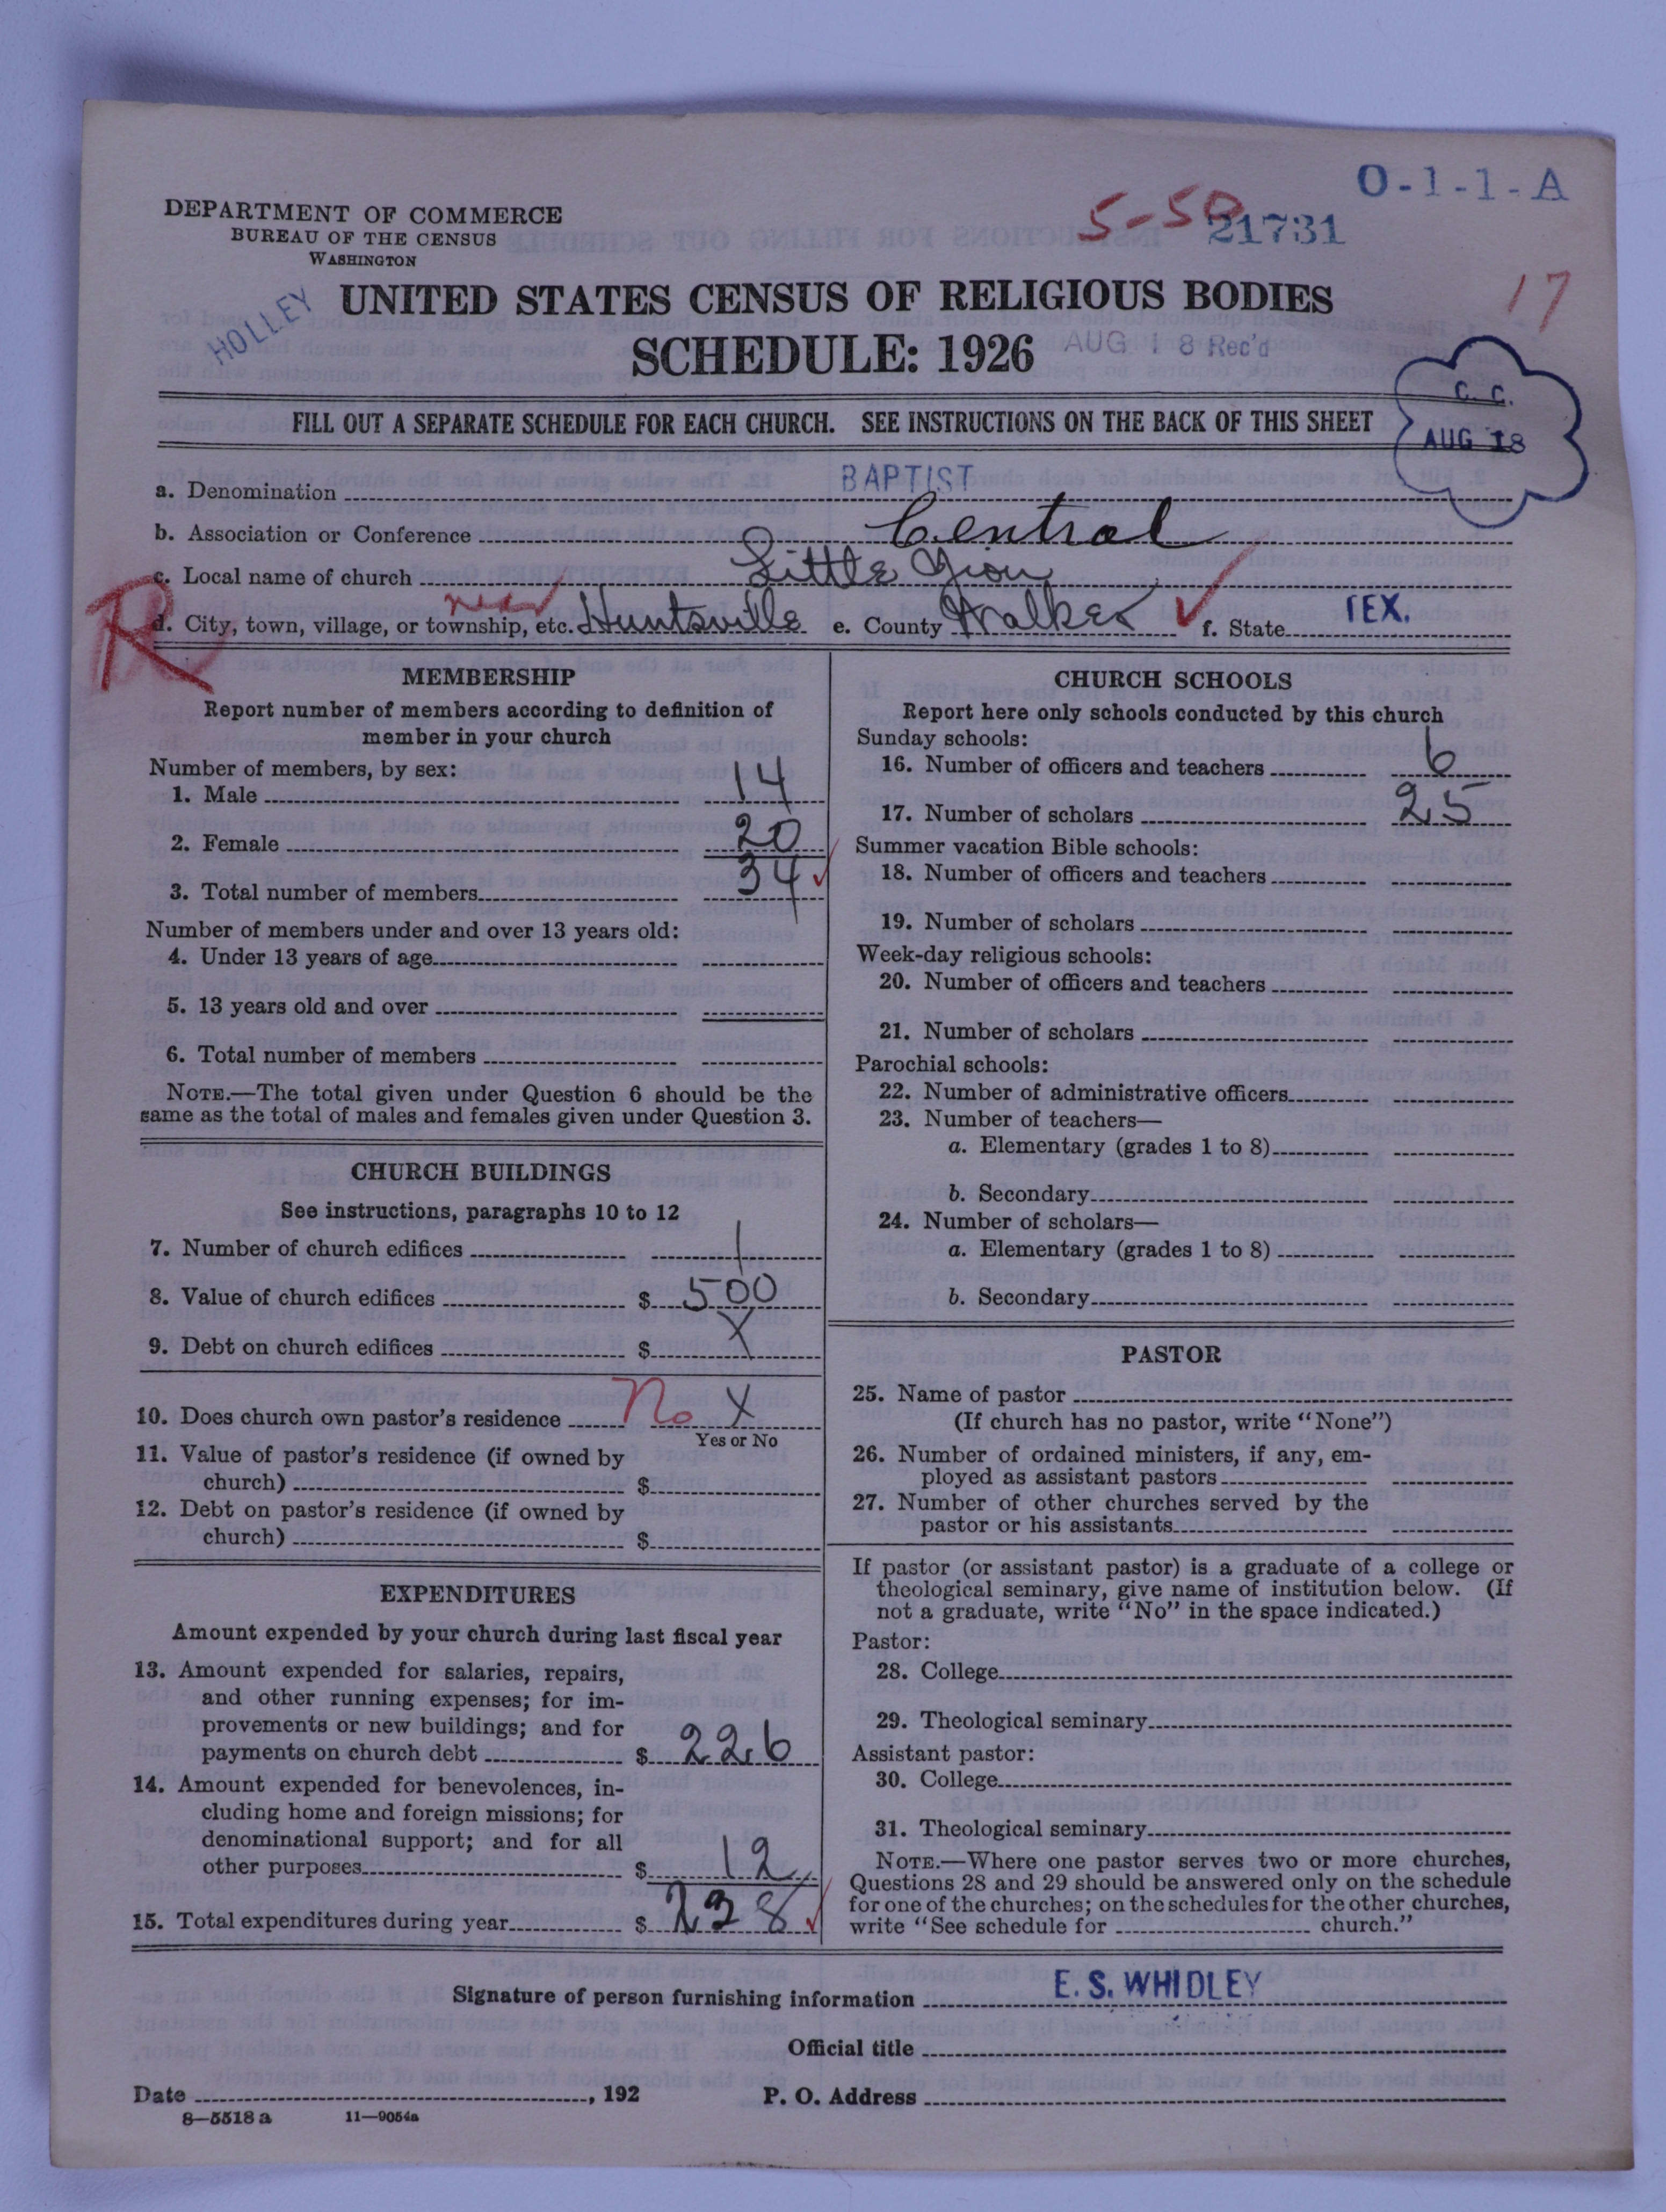 O-1-1-A
5-50
21731
DEPARTMENT OF COMMERCE
BUREAU OF THE CENSUS
WASHINGTON
17
HOLLEY
UNITED STATES CENSUS OF RELIGIOUS BODIES
SCHEDULE: 1926
AUG 18 Rec'd
C. C.
AUG 18
FILL OUT A SEPARATE SCHEDULE FOR EACH CHURCH. SEE INSTRUCTIONS ON THE BACK OF THIS SHEET
a. Denomination BAPTIST
b. Association or Conference Central
c. Local name of church Little Zion
R
near
d. City, town, village, or township, etc. Huntsville e. County Walker f. State TEX.
MEMBERSHIP
Report number of members according to definition of
member in your church
Number of members, by sex:
1. Male 14
2. Female 20
3. Total number of members 34
Number of members under and over 13 years old:
4. Under 13 years of age
5. 13 years old and over
6. Total number of members
NOTE.—The total given under Question 6 should be the
same as the total of males and females given under Question 3.
CHURCH BUILDINGS
See instructions, paragraphs 10 to 12
7. Number of church edifices 1
8. Value of church edifices $ 500
9. Debt on church edifices $ X
10. Does church own pastor's residence No X
Yes or No
11. Value of pastor's residence (if owned by
church) $
12. Debt on pastor's residence (if owned by
church) $
EXPENDITURES
Amount expended by your church during last fiscal year
13. Amount expended for salaries, repairs,
and other running expenses; for im-
provements or new buildings; and for
payments on church debt $ 226
14. Amount expended for benevolences, in-
cluding home and foreign missions; for
denominational support; and for all
other purposes $ 12
15. Total expenditures during year $ 238
CHURCH SCHOOLS
Report here only schools conducted by this church
Sunday schools:
16. Number of officers and teachers 6
17. Number of scholars 25
Summer vacation Bible schools:
18. Number of officers and teachers
19. Number of scholars
Week-day religious schools:
20. Number of officers and teachers
21. Number of scholars
Parochial schools:
22. Number of administrative officers
23. Number of teachers—
a. Elementary (grades 1 to 8)
b. Secondary
24. Number of scholars—
a. Elementary (grades 1 to 8)
b. Secondary
PASTOR
25. Name of pastor
(If church has no pastor, write "None")
26. Number of ordained ministers, if any, em-
ployed as assistant pastors
27. Number of other churches served by the
pastor or his assistants
If pastor (or assistant pastor) is a graduate of a college or
theological seminary, give name of institution below. (If
not a graduate, write "No" in the space indicated.)
Pastor:
28. College
29. Theological seminary
Assistant pastor:
30. College
31. Theological seminary
NOTE.—Where one pastor serves two or more churches,
Questions 28 and 29 should be answered only on the schedule
for one of the churches; on the schedules for the other churches,
write "See schedule for church."
Signature of person furnishing information E. S. WHIDLEY
Official title
Date , 192 P. O. Address
8—5518 a 11—9054a